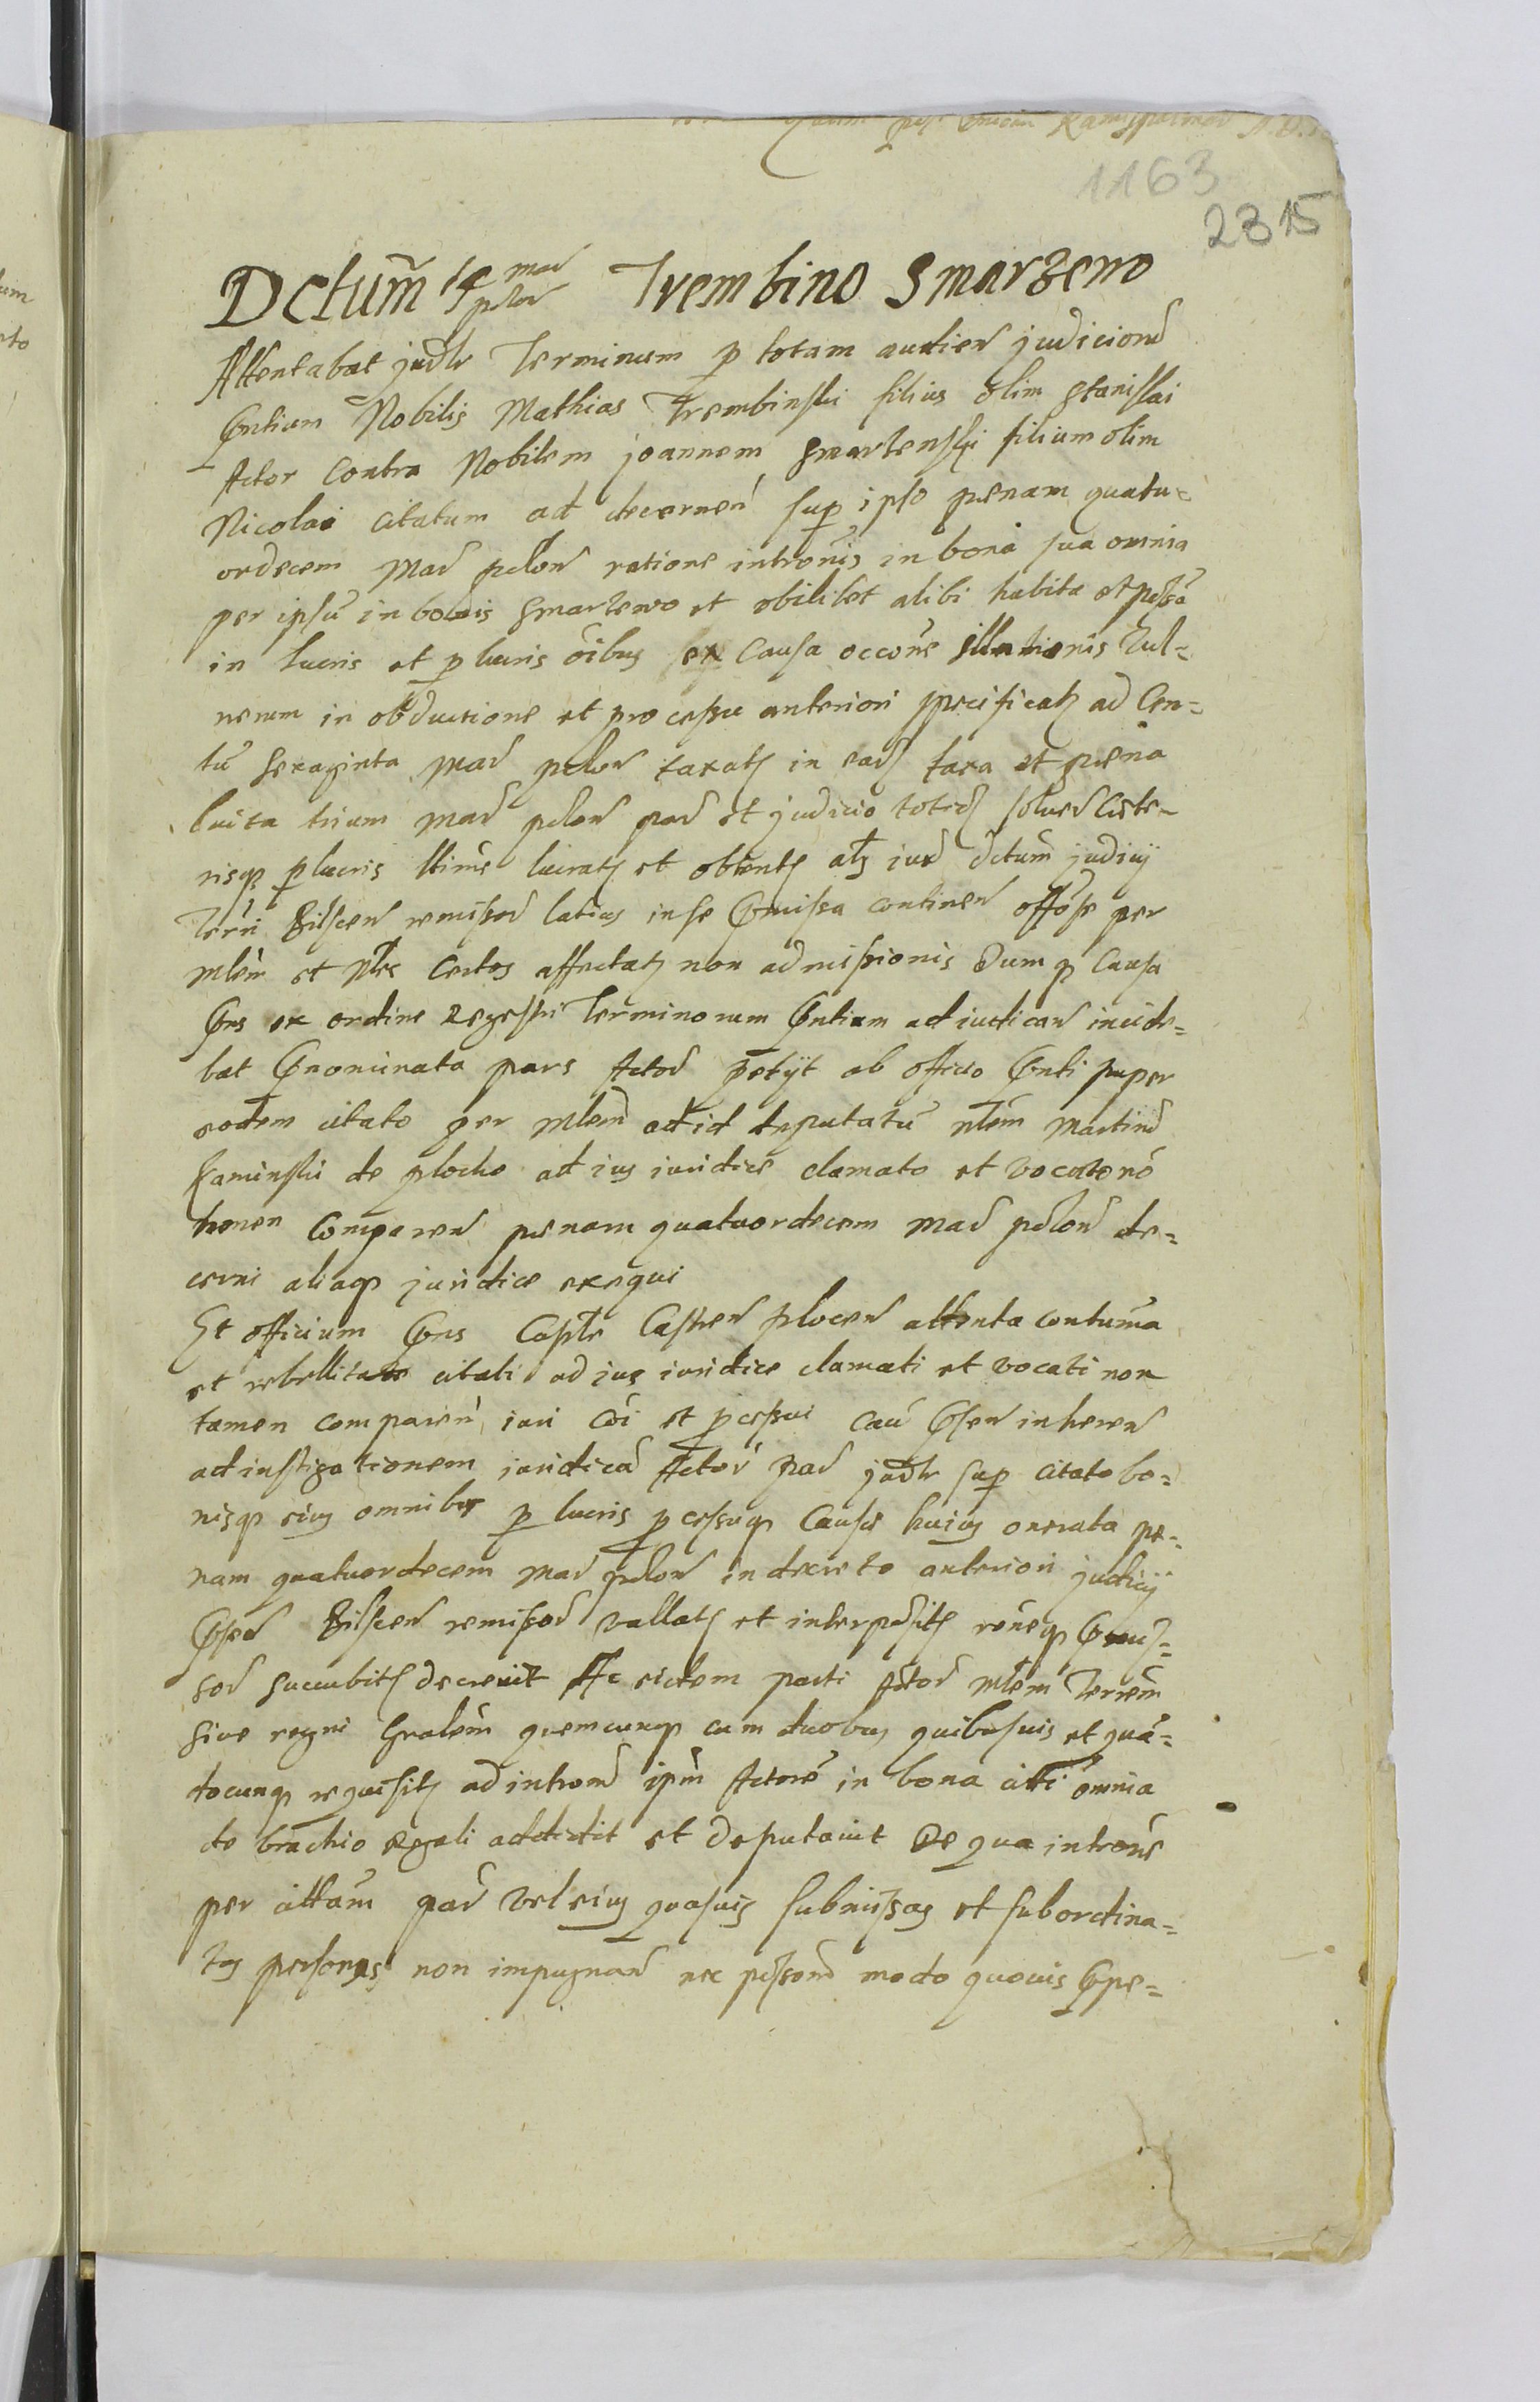 1163
2315
Dctum 14 mar polon Trembino Smarzewo
Attentabat judlr Terminum p totam audien judiciorū
Pntium Nobilis Mathias Trembinski filius olim Stanislai
Actor Contra Nobilem Joannem Smarzenski filium olim
Nicolai citatum ad decernen sup ipso penam quatu-
ordecem Mar polon ratione intronis in bona sua omnia
per ipsū in bonis Smarzewo et vbilibet alibi habita et possa
in lucris et p lucris oibus ex Causa occone illationis vul-
nerum in obductione et processu anteriori specificat ad Cen-
tū sexaginta Mar polon taxat in ead taxa et pena
luita trium Mar polon par et judicio totid soluen Cete-
risq p lucris ltime lucrat et obtent als iux dctum judicij
Terri Bilscen remissor latius in se pmissa continen offose per
Mlem et Nles Certos affectat non admissionis Dum q Causa
Pns ex ordine Regestri Terminorum Pntium ad iudicand incide-
bat Pnominata pars Actor petijt ab officio Pnti super
eodem citato per Mlem ad id deputatū Nlem Martinū
Kaminski de plocko ad ius iuridice clamato et vocato nō
tamen Comparen penam quatuordecem Mar polon de-
cerni aliaq juridice exequi
Et officium Pns Capтle Castren plocen attenta contuma
et rebellitate citati ad ius iuridice clamati et vocati non
tamen comparen iuri coi et pcessui cau Psen inheren
ad instigationem iuridicā Actor par judlr sup citato bo-
nisq eius omnibus p lucris pcessuq Causæ huius onerata pe-
nam quatuordecem Mar polon in decreto anteriori judicij
Psen Bilscen remissor vallat et interposit roneq pmis-
sor succubit decreuit Ac eidem parti Actor Mlem Terrem
Siue regni Gralem quemcunq cum duobus quibusuis et quā-
docunq requisit ad introm ipm Actorē in bona citti omnia
de brachio Regali addidit et deputauit De qua introne
per cittam par vel eius quasuis submissas et subordina-
tas personas non impugnan nec possom modo quouis Ppe-